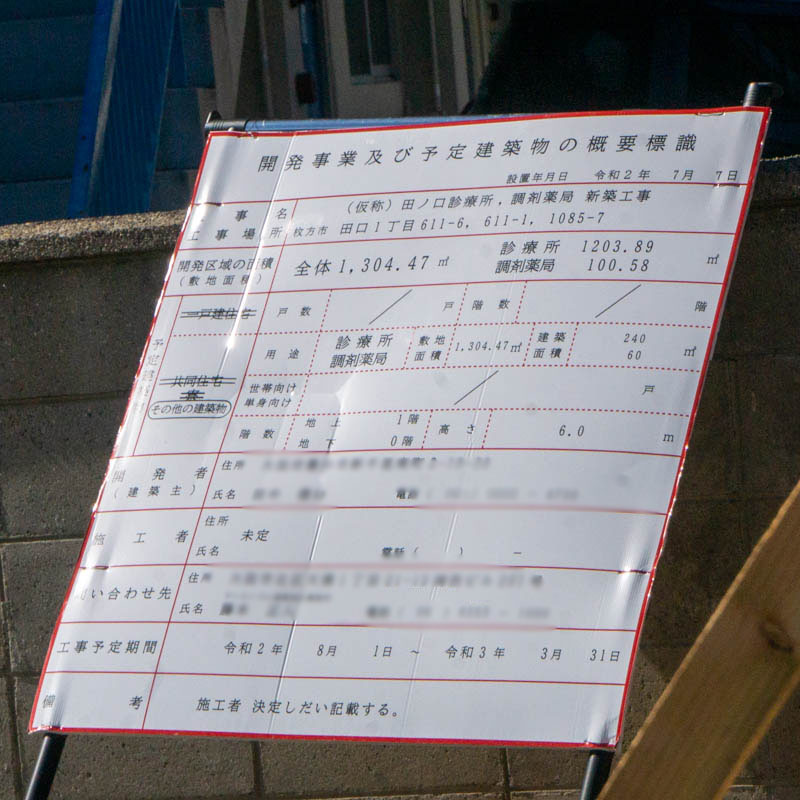 開発事業及び予定建築物の概要標識
設置年月日 令和2年 7月 7日
事名 (仮称)田ノ口診療所,調剤薬局 新築工事
工事場所 枚方市 田口1丁目611-6, 611-1, 1085-7
開発区域の面積 (敷地面積) 全体1,304.47㎡ 診療所 1203.89 ㎡
調剤薬局 100.58
一戸建住宅 戸数 / 戸 階数 / 階
用途 診療所 調剤薬局 敷地面積 1,304.47㎡ 建築面積 240 60 ㎡
共同住宅
その他の建築物
世帯向け 単身向け / 戸
階数 地上 1階 地下 0階 高さ 6.0 m
開発者 (建築主) 住所
氏名 電話
施工者 住所
氏名 未定 電話 ( ) −
い合わせ先 住所
氏名
工事予定期間 令和2年 8月 1日 ~ 令和3年 3月 31日
備考 施工者 決定しだい記載する。